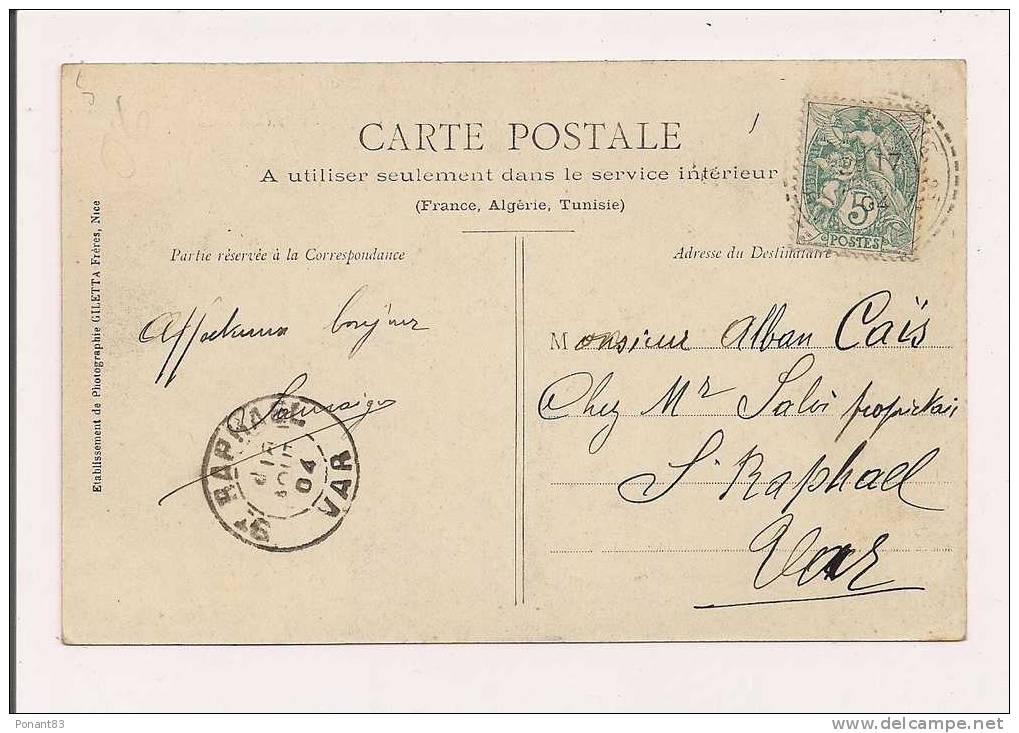 CARTE POSTALE
A utiliser seulement dans le service intérieur
(France, Algérie, Tunisie)
Partie réservée à la Correspondance
Adresse du Destinataire
5
POSTES
17
04
bonjour
Monsieur Alban Caïs
Chez Mr
St Raphael
Var
ST RAPHAEL
AOUT
04
VAR
Etablissement de Photographie GILETTA Frères, Nice
Ponant83
www.delcampe.net